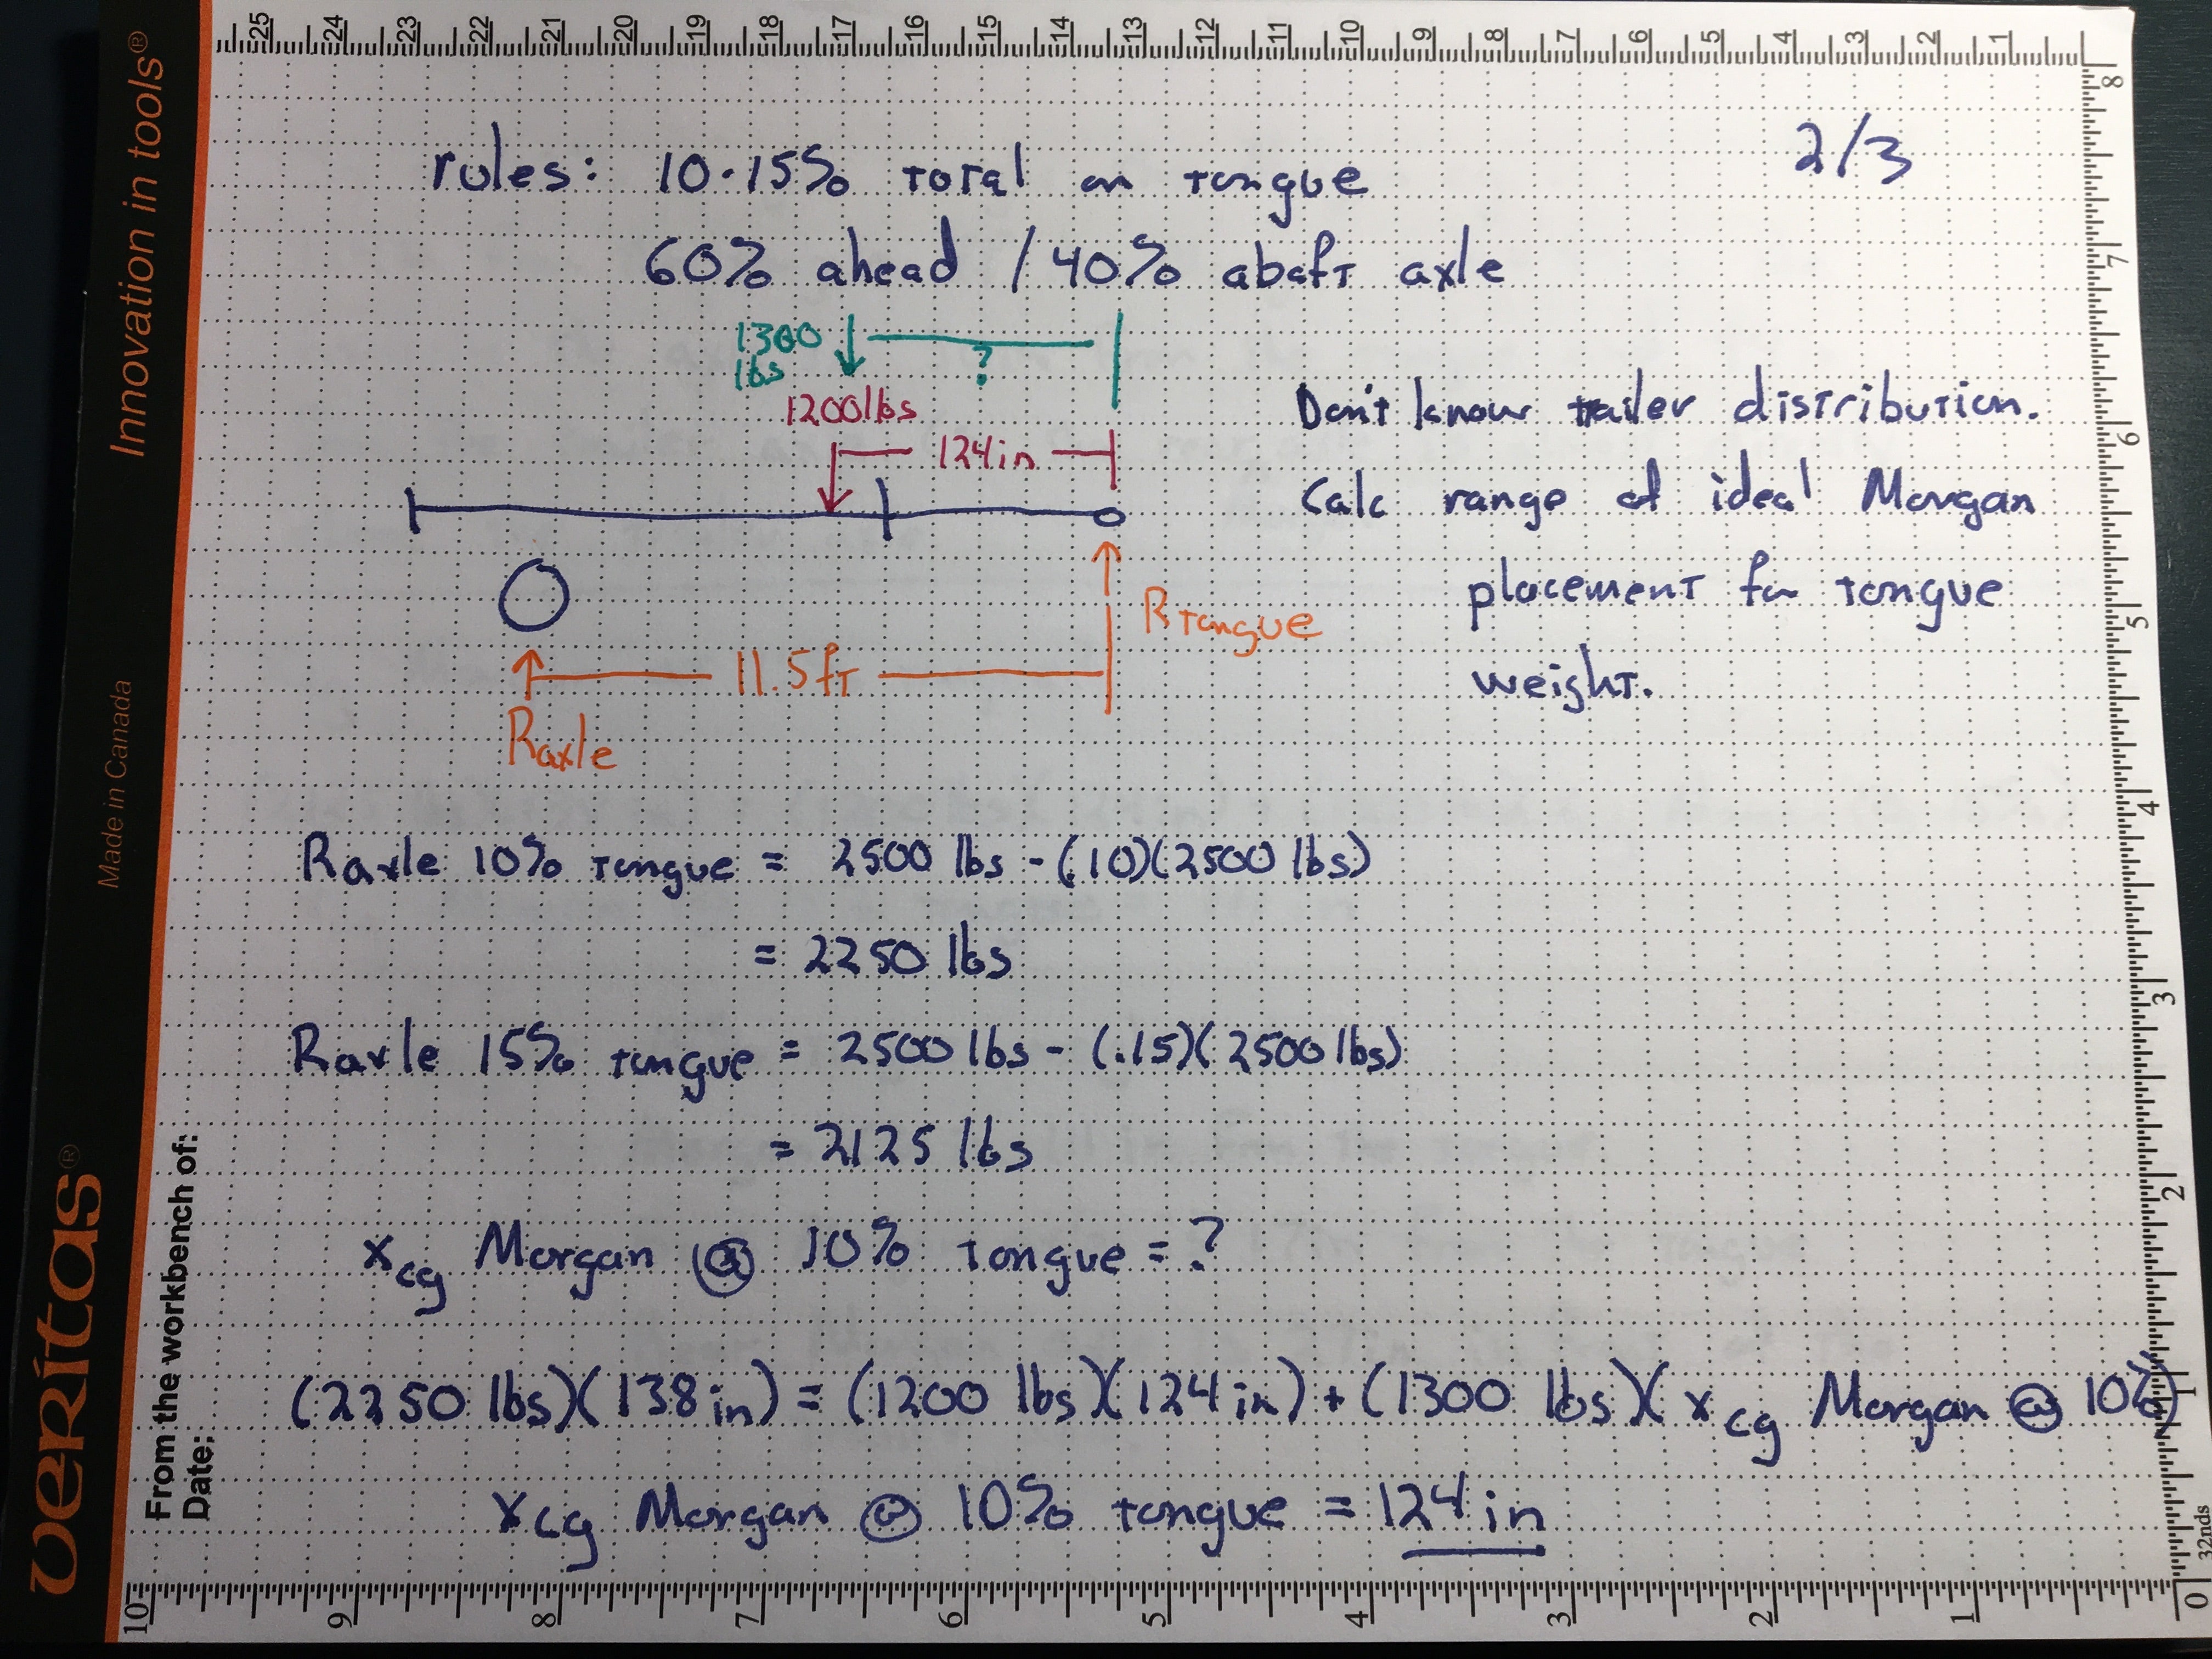 25 24 23 22 21 20 19 18 17 16 15 14 13 12 11 10 9 8 7 6 5 4 3 2 1
2/3
rules: 10-15% total on tongue
60% ahead / 40% abaft axle
1300
lbs
?
1200 lbs
124in
Don't know trailer distribution.
Calc range of ideal Morgan
placement for tongue
weight.
R Tongue
11.5 ft
Raxle
Raxle 10% tongue = 2500 lbs - (.10)(2500 lbs)
= 2250 lbs
Raxle 15% tongue = 2500 lbs - (.15)(2500 lbs)
= 2125 lbs
xcg Morgan @ 10% tongue = ?
(2250 lbs)(138in) = (1200 lbs)(124in) + (1300 lbs)(xcg Morgan @ 10%)
xcg Morgan @ 10% tongue = 124 in
8
7
6
5
4
3
2
1
32nds
10 9 8 7 6 5 4 3 2 1 0
Innovation in tools®
Made in Canada
veritas®
From the workbench of:
Date: